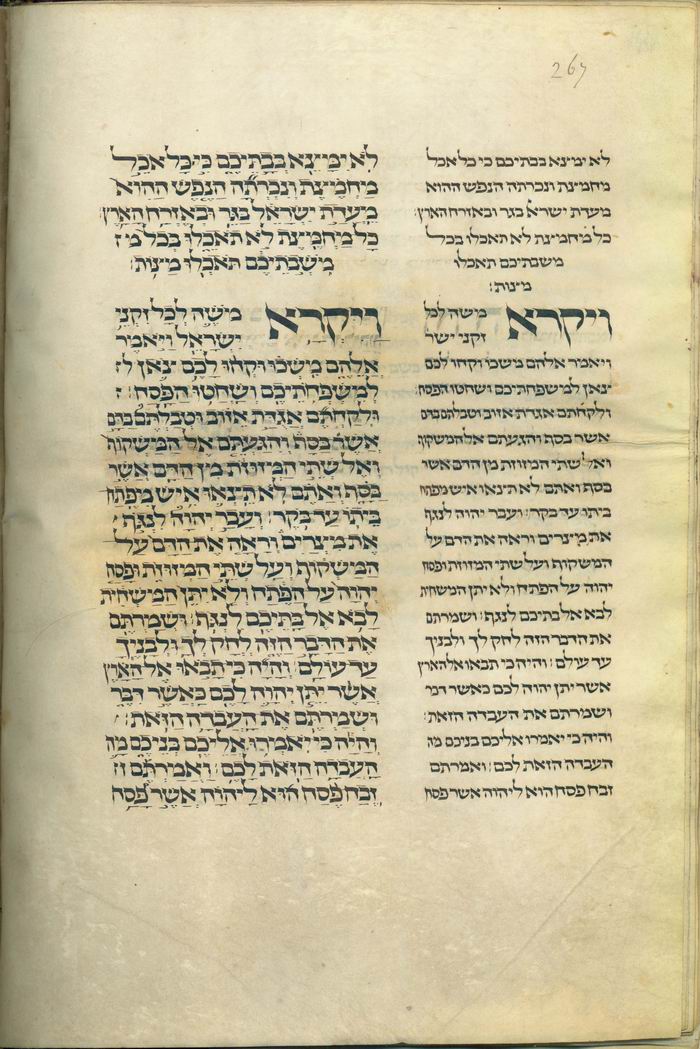 267
לא ימצא בבתיכם כי כל אכל
מחמצת ונכרתה הנפש ההוא
מעדת ישראל בגר ובאזרח הארץ׃
כל מחמצת לא תאכלו בכל
משבתיכם תאכלו
מצות׃
ויקרא משה לכל
זקני ישר
ויאמר אלהם משכו וקחו לכם
צאן למשפחתיכם ושחטו הפסח׃
ולקחתם אגדת אזוב וטבלתם בדם
אשר בסף והגעתם אל המשקוף
ואל שתי המזוזת מן הדם אשר
בסף ואתם לא תצאו איש מפתח
ביתו עד בקר׃ ועבר יהוה לנגף
את מצרים וראה את הדם על
המשקוף ועל שתי המזוזת ופסח
יהוה על הפתח ולא יתן המשחית
לבא אל בתיכם לנגף׃ ושמרתם
את הדבר הזה לחק לך ולבניך
עד עולם׃ והיה כי תבאו אל הארץ
אשר יתן יהוה לכם כאשר דבר
ושמרתם את העבדה הזאת׃
והיה כי יאמרו אליכם בניכם מה
העבדה הזאת לכם׃ ואמרתם
זבח פסח הוא ליהוה אשר פסח
לא ימצא בבתיכם כי כל אכל
מחמצת ונכרתה הנפש ההוא
מעדת ישראל בגר ובאזרח הארץ׃
כל מחמצת לא תאכלו בכל מ
משבתיכם תאכלו מצות׃
ויקרא משה לכל זקני
ישראל ויאמר
אלהם משכו וקחו לכם צאן ל
למשפחתיכם ושחטו הפסח׃
ולקחתם אגדת אזוב וטבלתם בדם
אשר בסף והגעתם אל המשקוף
ואל שתי המזוזת מן הדם אשר
בסף ואתם לא תצאו איש מפתח
ביתו עד בקר׃ ועבר יהוה לנגף
את מצרים וראה את הדם על
המשקוף ועל שתי המזוזת ופסח
יהוה על הפתח ולא יתן המשחית
לבא אל בתיכם לנגף׃ ושמרתם
את הדבר הזה לחק לך ולבניך
עד עולם׃ והיה כי תבאו אל הארץ
אשר יתן יהוה לכם כאשר דבר
ושמרתם את העבדה הזאת׃
והיה כי יאמרו אליכם בניכם מה
העבדה הזאת לכם׃ ואמרתם ז
זבח פסח הוא ליהוה אשר פסח